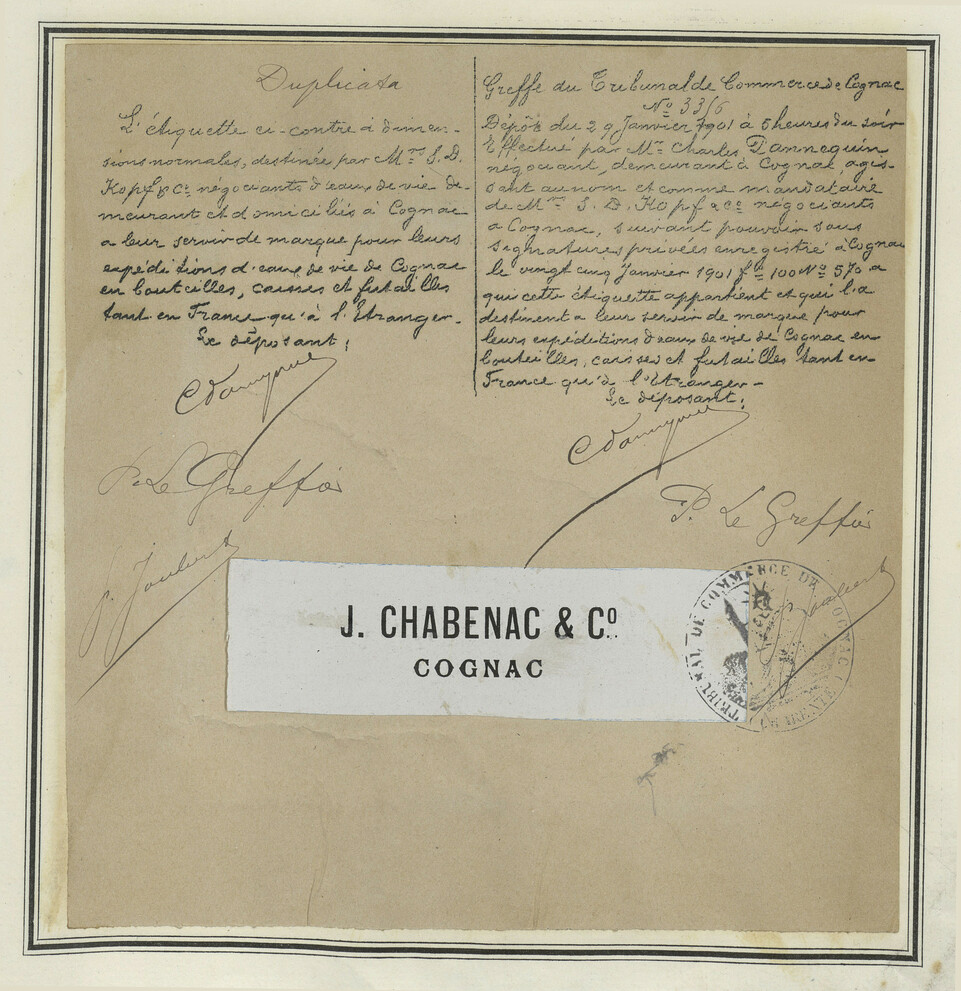 Duplicata
L'étiquette ci-contre à dimen-
sions normales, destinée par Mrs S. D.
Kopf & Co négociants d'eaux de vie de-
meurant et domiciliés à Cognac
a leur servir de marque pour leurs
expéditions d'eaux de vie de Cognac
en bouteilles, caisses et futailles
tant en France qu'à l'Etranger.
Le déposant,
P. Le Greffier
Greffe du Tribunal de Commerce de Cognac
No 3316
Dépôt du 29 Janvier 1901 à 5 heures du soir
Effectué par Mr Charles Dannequin
négociant, demeurant à Cognac, agis-
sant au nom et comme mandataire
de Mrs S. D. Kopf & Co négociants
a Cognac, suivant pouvoir sous
segnatures privées enregistré à Cognac
le vingt cinq Janvier 1901 fo 100 No 570 a
qui cette étiquette appartient et qui l'a
destinent a leur servir de marque pour
leurs expéditions d'eaux de vie de Cognac en
bouteilles, caisses et futailles tant en
France qu'à l'Etranger-
Le déposant,
P. Le Greffier
J. CHABENAC & Co.
COGNAC
TRIBUNAL DE COMMERCE DE COGNAC
(CHARENTE)